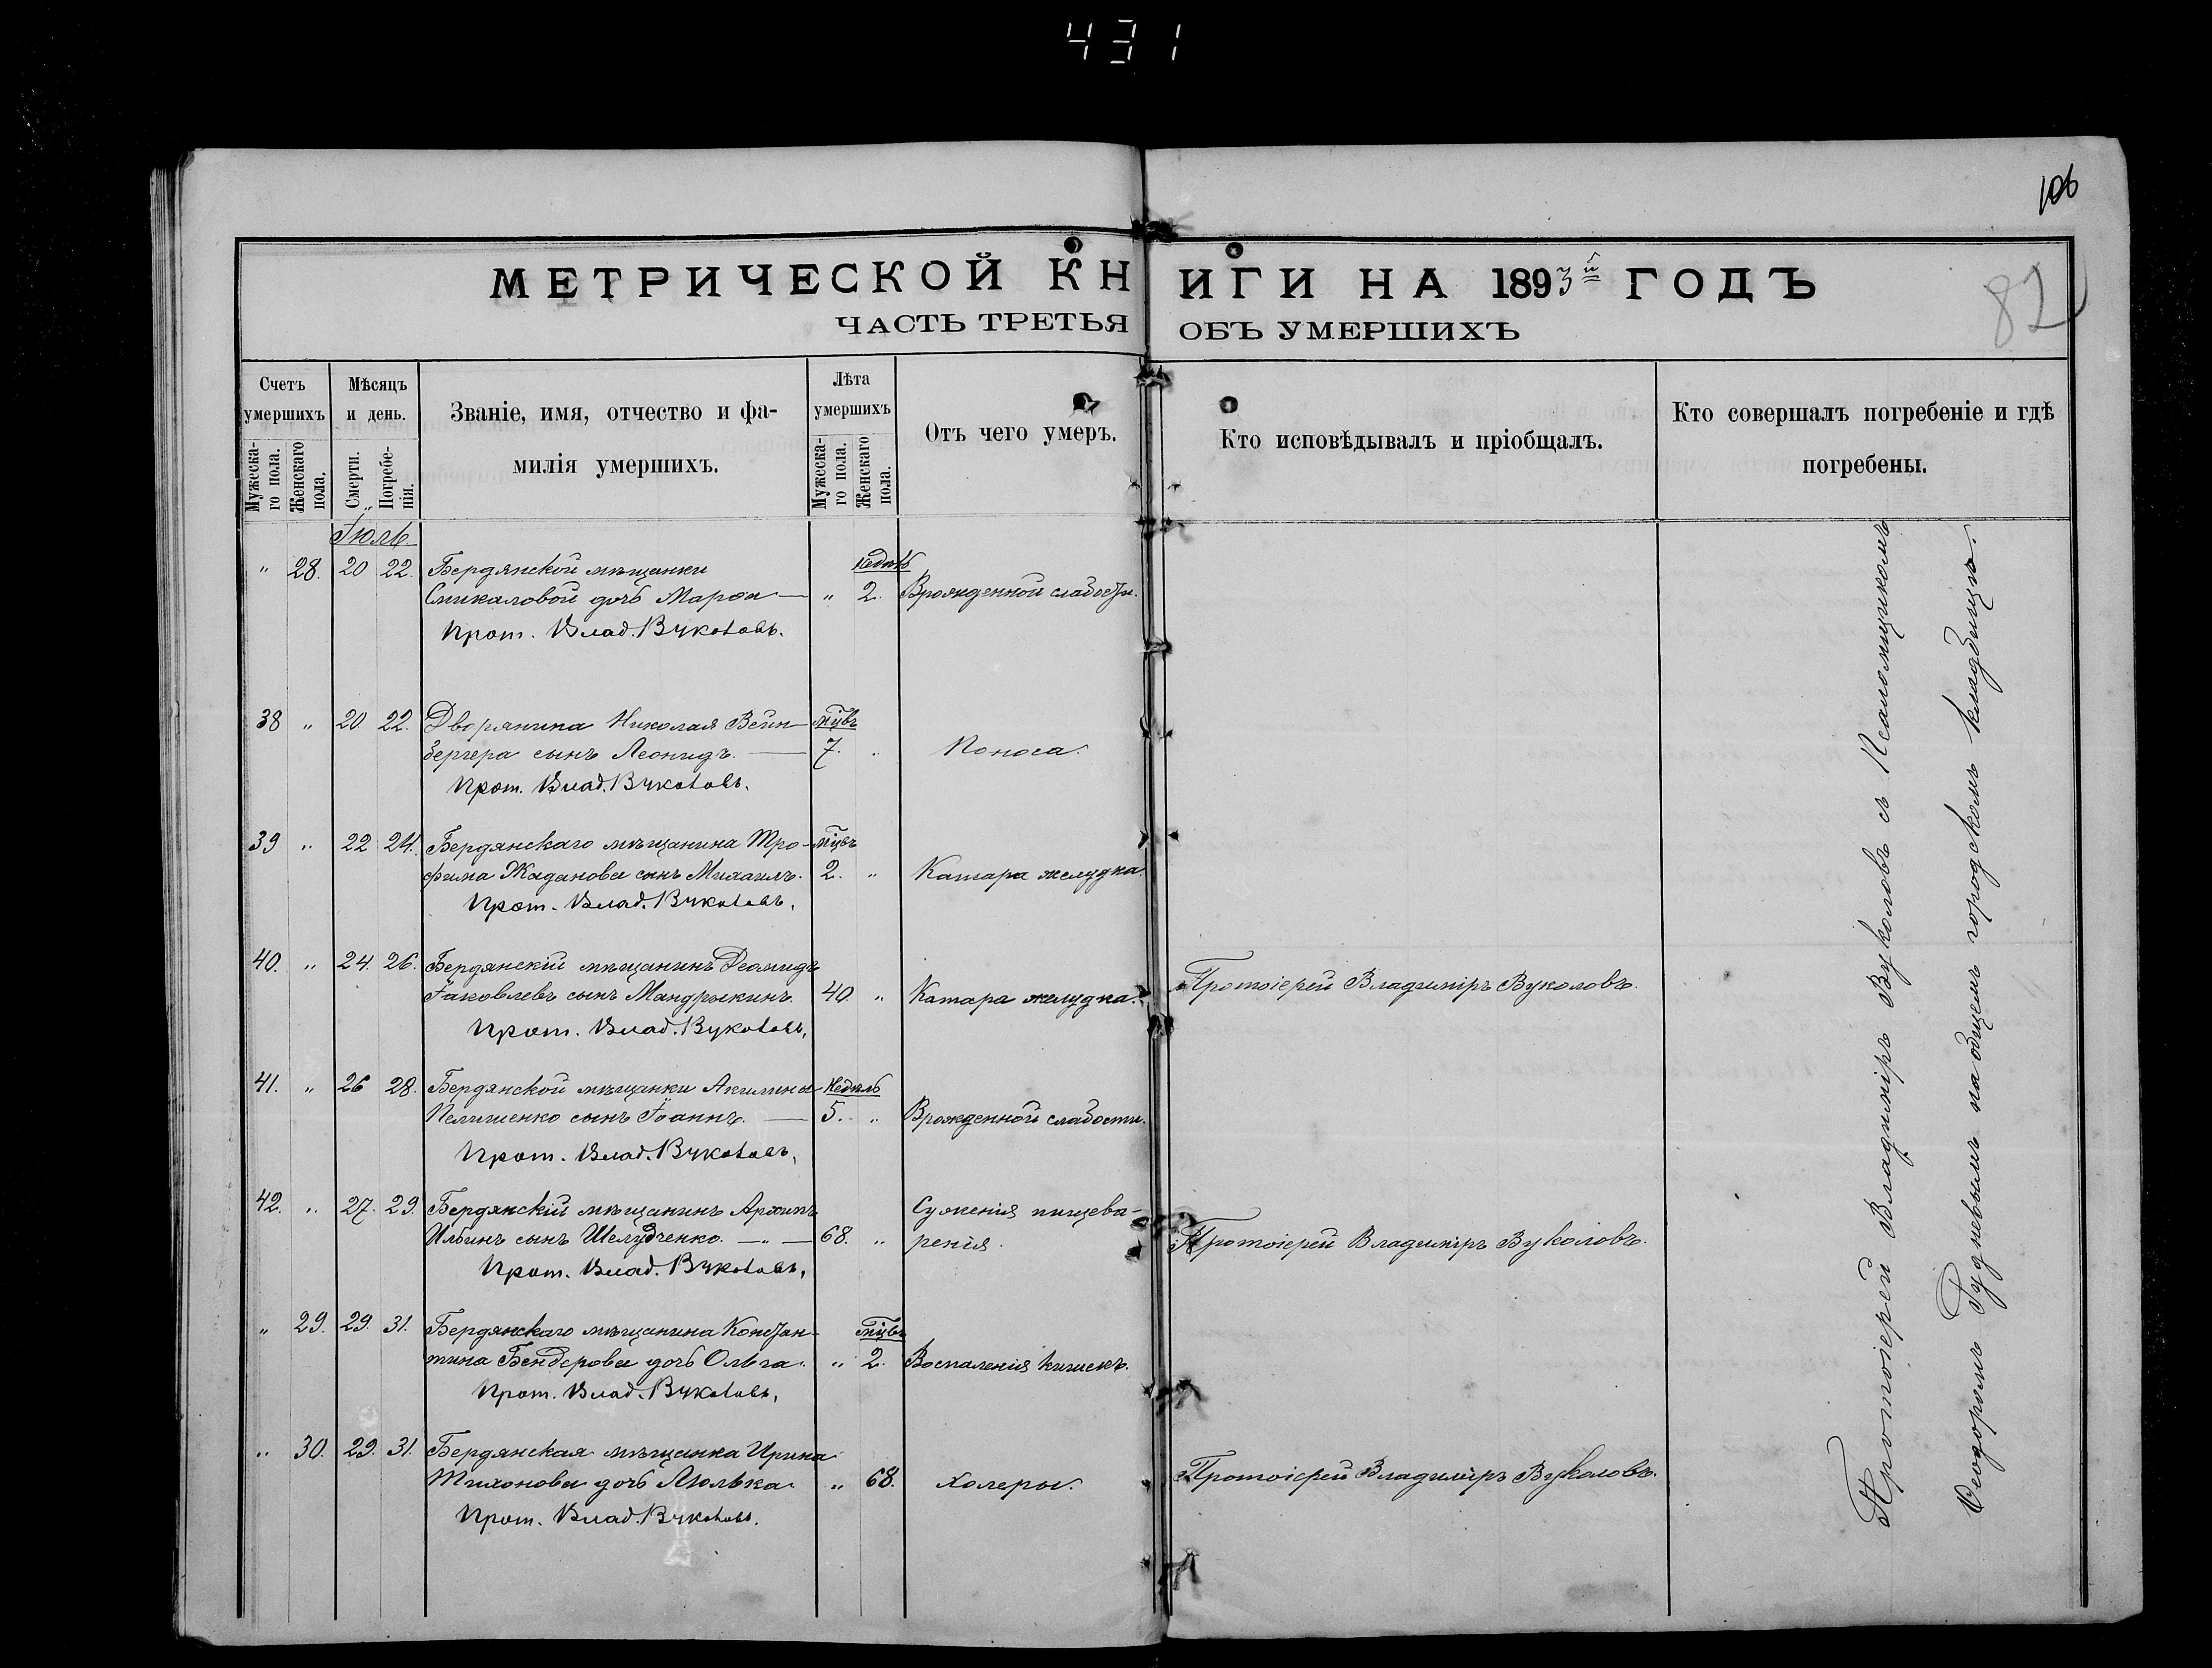 431
106
82
МЕТРИЧЕСКОЙ КНИГИ НА 1893й ГОДЪ
ЧАСТЬ ТРЕТЬЯ ОБЪ УМЕРШИХЪ
Счетъ умершихъ
Мужеска-го пола.
Женскаго пола.
Мѣсяцъ и день.
Смерти.
Погребе-нія.
Званіе, имя, отчество и фа-
милія умершихъ.
Лѣта умершихъ
Мужеска-го пола.
Женскаго пола.
Отъ чего умеръ.
Кто исповѣдывалъ и пріобщалъ.
Кто совершалъ погребеніе и гдѣ
погребены.
Іюль.
" 28. 20 22. Бердянской мѣщанки недѣль
дочь " 2. Врожденной слабости.
Прот. Влад. Вуколовъ.
38 " 20 22. Дворянина Николая Вейн- мцвъ
бергера сынъ Леонидъ. 7. " Поноса.
Прот. Влад. Вуколовъ.
39 " 22 24. Бердянскаго мѣщанина Тро- мцвъ
фима Жаданова сынъ Михаилъ. 2. " Катара желудка.
Прот. Влад. Вуколовъ.
40. " 24. 26. Бердянскій мѣщанинъ Леонидъ
Іаковлевъ сынъ Мандрыкинъ. 40. " Катара желудка. Протоіерей Владиміръ Вуколовъ.
Прот. Влад. Вуколовъ.
41. " 26 28. Бердянской мѣщанки Акилины недѣль
сынъ Іоаннъ. 5. " Врожденной слабости.
Прот. Влад. Вуколовъ.
42. " 27. 29. Бердянскій мѣщанинъ Архипъ Суженія пищева-
Ильинъ сынъ Шелудченко. — " — 68. " ренія. Протоіерей Владиміръ Вуколовъ.
Прот. Влад. Вуколовъ.
" 29. 29. 31. Бердянскаго мѣщанина Констан- мцвъ
тина Бендерова дочь Ольга. " 2. Воспаленія кишекъ.
Прот. Влад. Вуколовъ.
" 30. 29. 31. Бердянская мѣщанка Ирина
Тихонова дочь Люлька. " 68. Холеры. Протоіерей Владиміръ Вуколовъ.
Прот. Влад. Вуколовъ.
Протоіерей Владиміръ Вуколовъ съ Псаломщикомъ
Ѳеодоромъ Рудневымъ на общемъ городскомъ кладбищѣ.